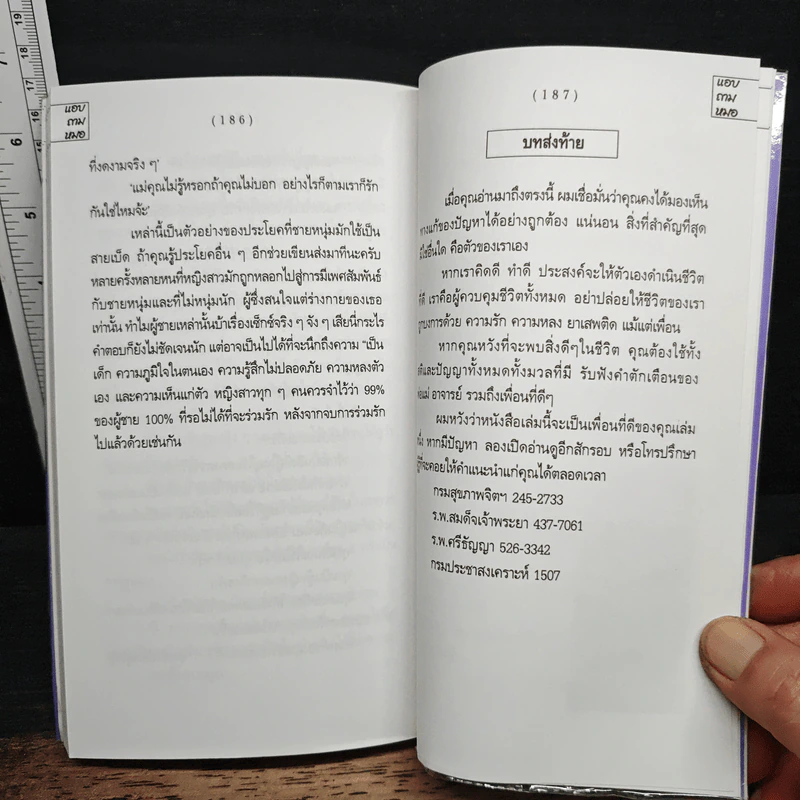 แอบ
ถาม
หมอ
(186)
ที่งดงามจริง ๆ'
'แม่คุณไม่รู้หรอกถ้าคุณไม่บอก อย่างไรก็ตามเราก็รัก
กันใช่ไหมจ้ะ'
เหล่านี้เป็นตัวอย่างของประโยคที่ชายหนุ่มมักใช้เป็น
สายเบ็ด ถ้าคุณรู้ประโยคอื่น ๆ อีกช่วยเขียนส่งมาทีนะครับ
หลายครั้งหลายหนที่หญิงสาวมักถูกหลอกไปสู่การมีเพศสัมพันธ์
กับชายหนุ่มและที่ไม่หนุ่มนัก ผู้ซึ่งสนใจแต่ร่างกายของเธอ
เท่านั้น ทำไมผู้ชายเหล่านั้นบ้าเรื่องเซ็กซ์จริง ๆ จัง ๆ เสียนี่กระไร
คำตอบก็ยังไม่ชัดเจนนัก แต่อาจเป็นไปได้ที่จะนึกถึงความ "เป็น
เด็ก ความภูมิใจในตนเอง ความรู้สึกไม่ปลอดภัย ความหลงตัว
เอง และความเห็นแก่ตัว หญิงสาวทุก ๆ คนควรจำไว้ว่า 99%
ของผู้ชาย 100% ที่รอไม่ได้ที่จะร่วมรัก หลังจากจบการร่วมรัก
ไปแล้วด้วยเช่นกัน
(187)
แอบ
ถาม
หมอ
บทส่งท้าย
เมื่อคุณอ่านมาถึงตรงนี้ ผมเชื่อมั่นว่าคุณคงได้มองเห็น
ทางแก้ของปัญหาได้อย่างถูกต้อง แน่นอน สิ่งที่สำคัญที่สุด
มิใช่อื่นใด คือตัวของเราเอง
หากเราคิดดี ทำดี ประสงค์จะให้ตัวเองดำเนินชีวิต
ที่ดี เราคือผู้ควบคุมชีวิตทั้งหมด อย่าปล่อยให้ชีวิตของเรา
ถูกบงการด้วย ความรัก ความหลง ยาเสพติด แม้แต่เพื่อน
หากคุณหวังที่จะพบสิ่งดีๆในชีวิต คุณต้องใช้ทั้ง
สติและปัญญาทั้งหมดทั้งมวลที่มี รับฟังคำตักเตือนของ
พ่อแม่ อาจารย์ รวมถึงเพื่อนที่ดีๆ
ผมหวังว่าหนังสือเล่มนี้จะเป็นเพื่อนที่ดีของคุณเล่ม
หนึ่ง หากมีปัญหา ลองเปิดอ่านดูอีกสักรอบ หรือโทรปรึกษา
ผู้ที่จะคอยให้คำแนะนำแก่คุณได้ตลอดเวลา
กรมสุขภาพจิตฯ 245-2733
ร.พ.สมด็จเจ้าพระยา 437-7061
ร.พ.ศรีธัญญา 526-3342
กรมประชาสงเคราะห์ 1507